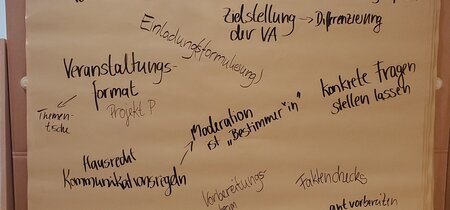 Zielstellung
der VA → Differenzierung
Einladungs(formulierung)
Veranstaltungs-
format
Projekt P
Themen-
tische
Konkrete Fragen
stellen lassen
Moderation
ist „Bestimmer*in"
Hausrecht
Kommunikationsregeln
Vorbereitungs-
team
Faktenchecks
gut vorbereiten